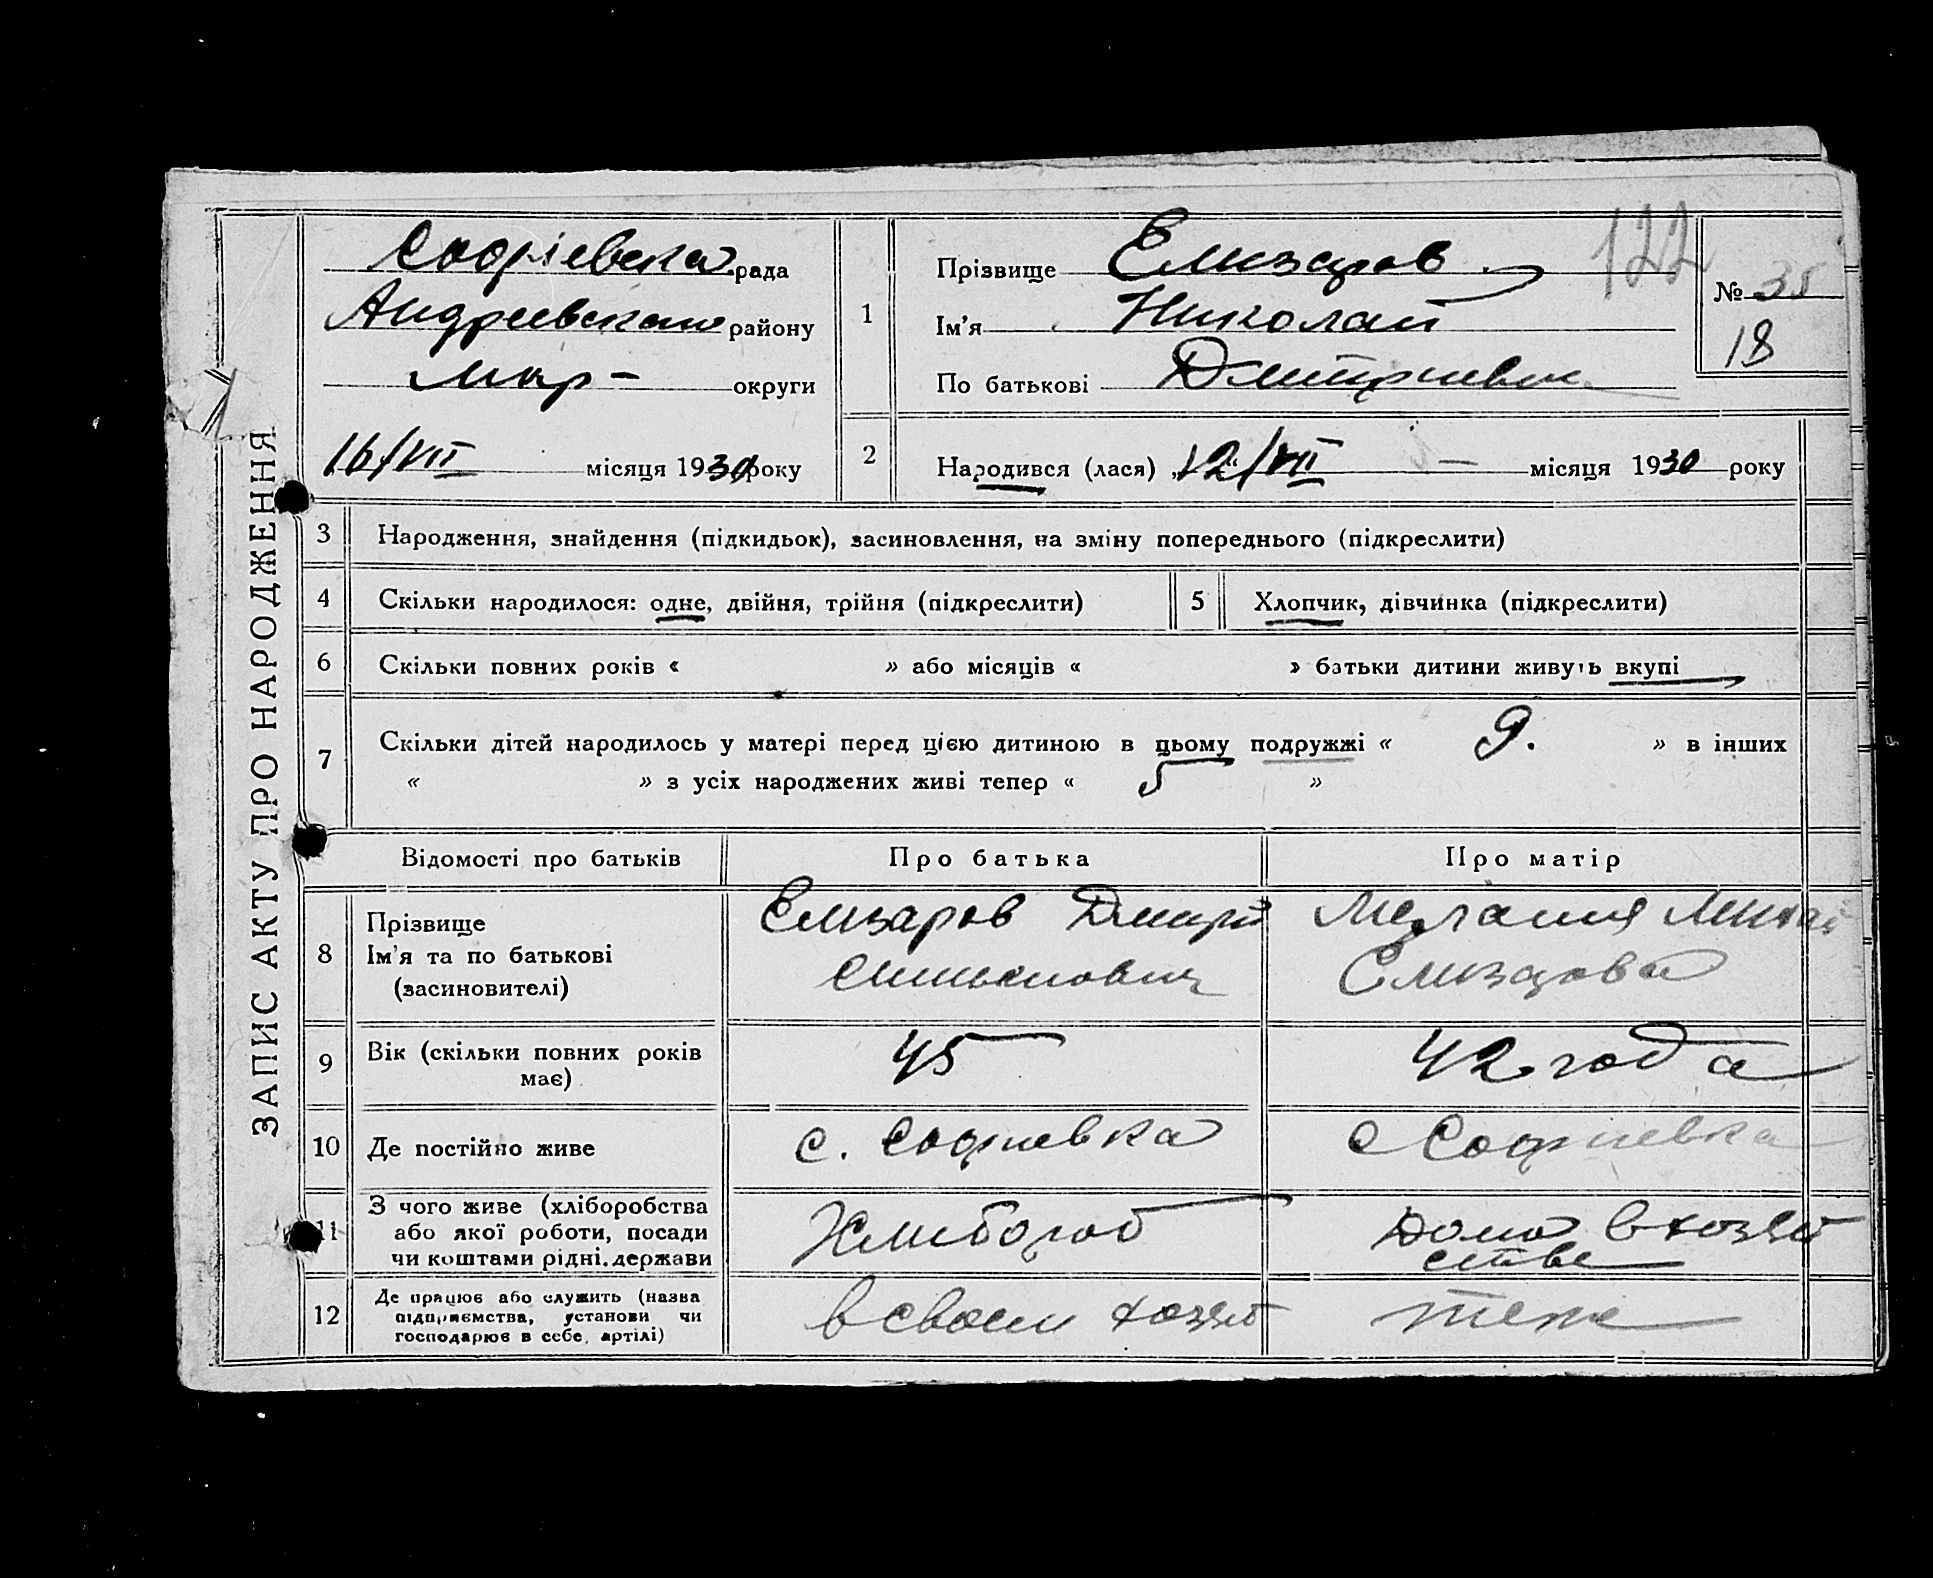 ЗАПИС АКТУ ПРО НАРОДЖЕННЯ
Софіевска рада
Андреевскаго району
Мар- округи
16/VII місяця 1930 року
1
Прізвище Елизаров
Ім'я Николай
По батькові Дмитриевич
122
№ 35
18
2
Народився (лася) „12/VII місяця 1930 року
3 Народження, знайдення (підкидьок), засиновлення, на зміну попереднього (підкреслити)
4 Скільки народилося: одне, двійня, трійня (підкреслити)
5 Хлопчик, дівчинка (підкреслити)
6 Скільки повних років « » або місяців « » батьки дитини живуть вкупі
7 Скільки дітей народилось у матері перед цією дитиною в цьому подружжі « 9. » в інших
« » з усіх народжених живі тепер « 5 »
Відомості про батьків Про батька Про матір
8 Прізвище
Ім'я та по батькові
(засиновителі)
Елизаров Дмитрий
Мелания Михай
Елизарова
9 Вік (скільки повних років
має)
45
42 года
10 Де постійно живе
с. Софиевка
с Софиевка
11 З чого живе (хліборобства
або якої роботи, посади
чи коштами рідні. держави
Хлибороб
Дома в хозяй
стве
12 Де працює або служить (назва
підприємства, установи чи
господарює в себе, артілі)
в своем хозяй
тоже